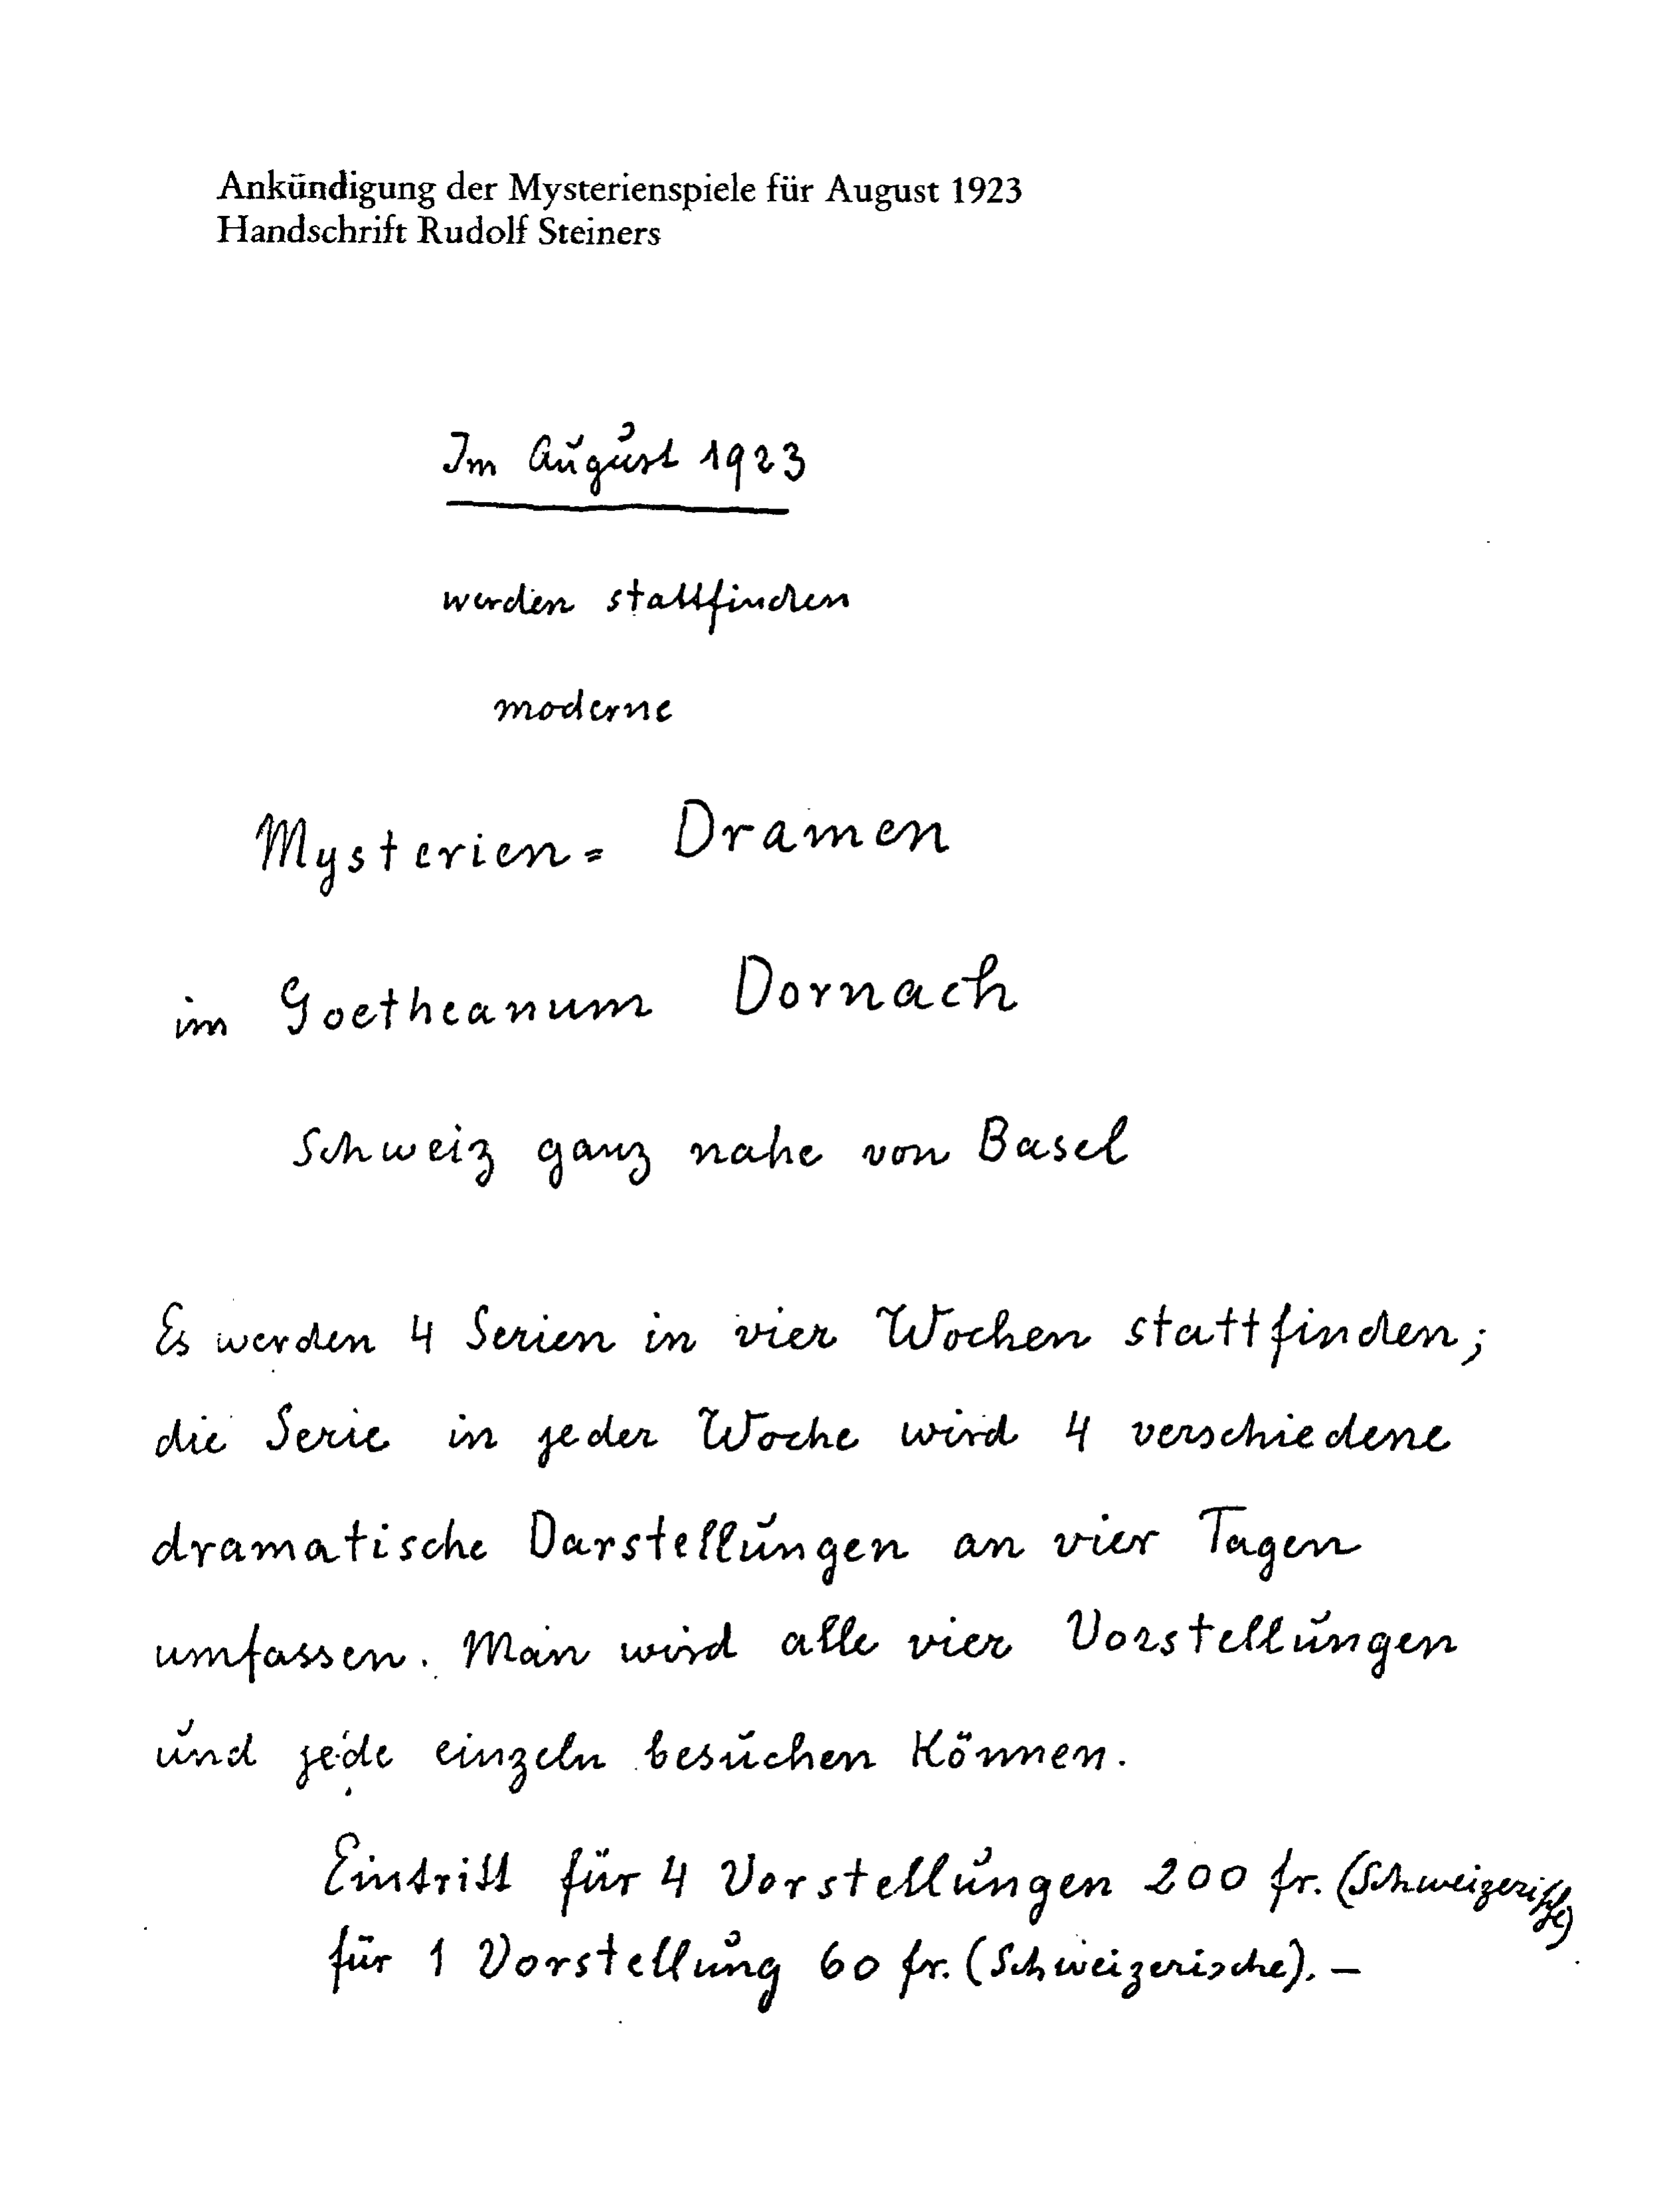 Ankündigung der Mysterienspiele für August 1923
Handschrift Rudolf Steiners
Im August 1923
werden stattfinden
moderne
Mysterien= Dramen
im Goetheanum Dornach
Schweiz ganz nahe von Basel
Es werden 4 Serien in vier Wochen stattfinden;
die Serie in jeder Woche wird 4 verschiedene
dramatische Darstellungen an vier Tagen
umfassen. Man wird alle vier Vorstellungen
und jede einzeln besuchen können.
Eintritt für 4 Vorstellungen 200 fr. (Schweizerische)
für 1 Vorstellung 60 fr. (Schweizerische). –